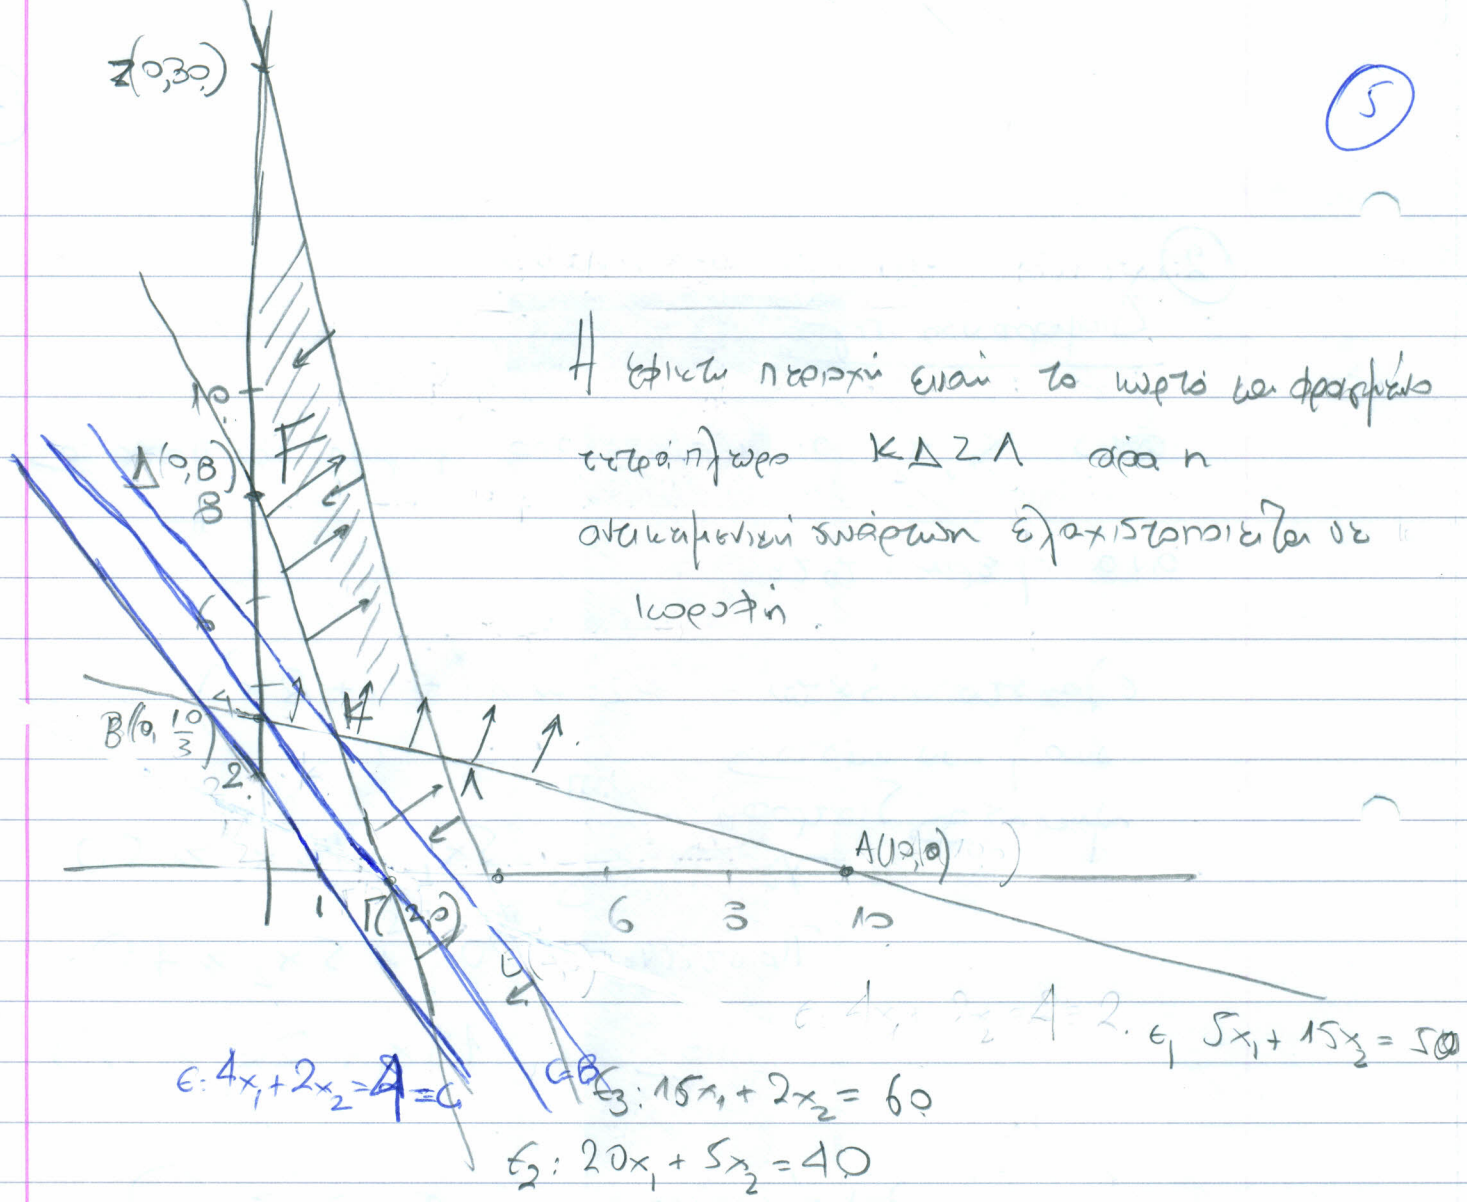 Z(0,30)
5
Η εφικτη περιοχή ειναι το κυρτό και φραγμένο
τετράπλευρο ΚΔΖΛ άρα η
αντικειμενική συνάρτηση ελαχιστοποιείται σε
κορυφή.
10
Δ(0,8)
8
F
6
4
K
B(0, 10/3)
2
Λ
A(10,0)
1
Γ(2,0)
6
8
10
ε₁ 5x₁ + 15x₂ = 50
ε: 4x₁ + 2x₂ = 4 = C
C=8
ε₃: 15x₁ + 2x₂ = 60
ε₂: 20x₁ + 5x₂ = 40